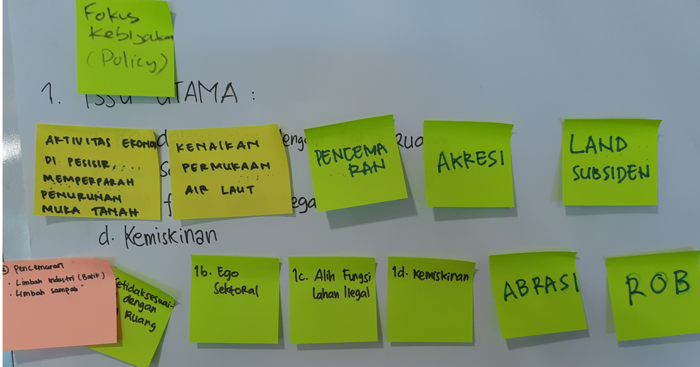 Fokus
Kebijakan
(Policy)
1. ISSU UTAMA :
AKTIVITAS EKONOMI
DI PESISIR....
MEMPERPARAH
PENURUNAN
MUKA TANAH
KENAIKAN
PERMUKAAN
AIR LAUT
PENCEMA
RAN
AKRESI
LAND
SUBSIDEN
d. Kemiskinan
Pencemaran
• Limbah Industri (Batik)
• Limbah Sampah
etidaksesuai-
dengan
Ruang
1b. Ego
Sektoral
1c. Alih Fungsi
Lahan Ilegal
1d. Kemiskinan
ABRASI
ROB